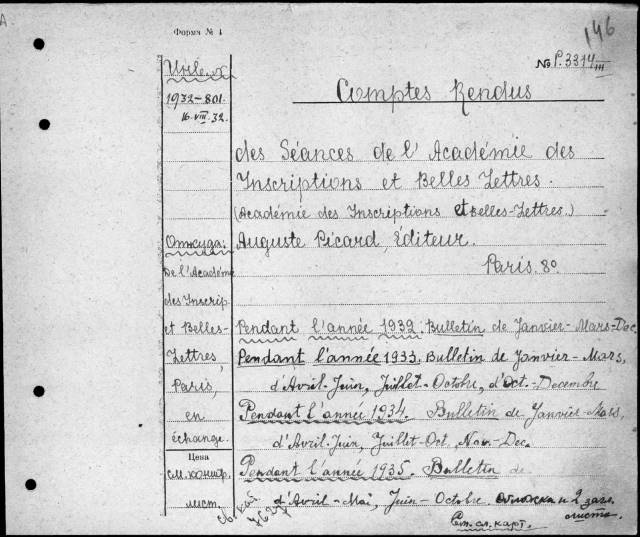 А
Форма № 1
146
№ P.3314 III
Инв. №
1932-801.
16.VIII.32.
Comptes Rendus
des Séances de l'Académie des
Inscriptions et Belles Lettres.
(Académie des Inscriptions et Belles-Lettres.)
Откуда:
Auguste Picard, Éditeur.
Paris. 8º.
De l'Académie
des Inscrip-
et Belles-
Lettres,
Paris,
en
échange.
Pendant l'année 1932. Bulletin de Janvier-Mars-Dec.
Pendant l'année 1933. Bulletin de Janvier-Mars,
d'Avril-Juin, Juillet-Octobre, d'Oct.-Decembre
Pendant l'année 1934. Bulletin de Janvier-Mars,
d'Avril-Juin, Juillet-Oct, Nov.-Dec.
Цена
см. контр.
лист.
Pendant l'année 1935. Bulletin de
d'Avril-Mai, Juin-Octobre. обложка и 2 загл.
листа.
См. сл. карт.